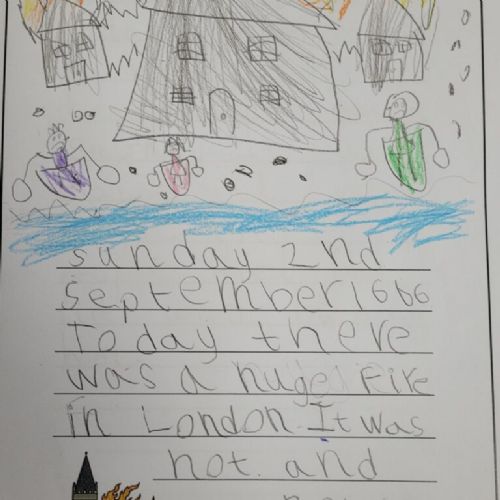 sunday 2nd
september 1666
Today there
was a huge Fire
in London. It was
hot. and